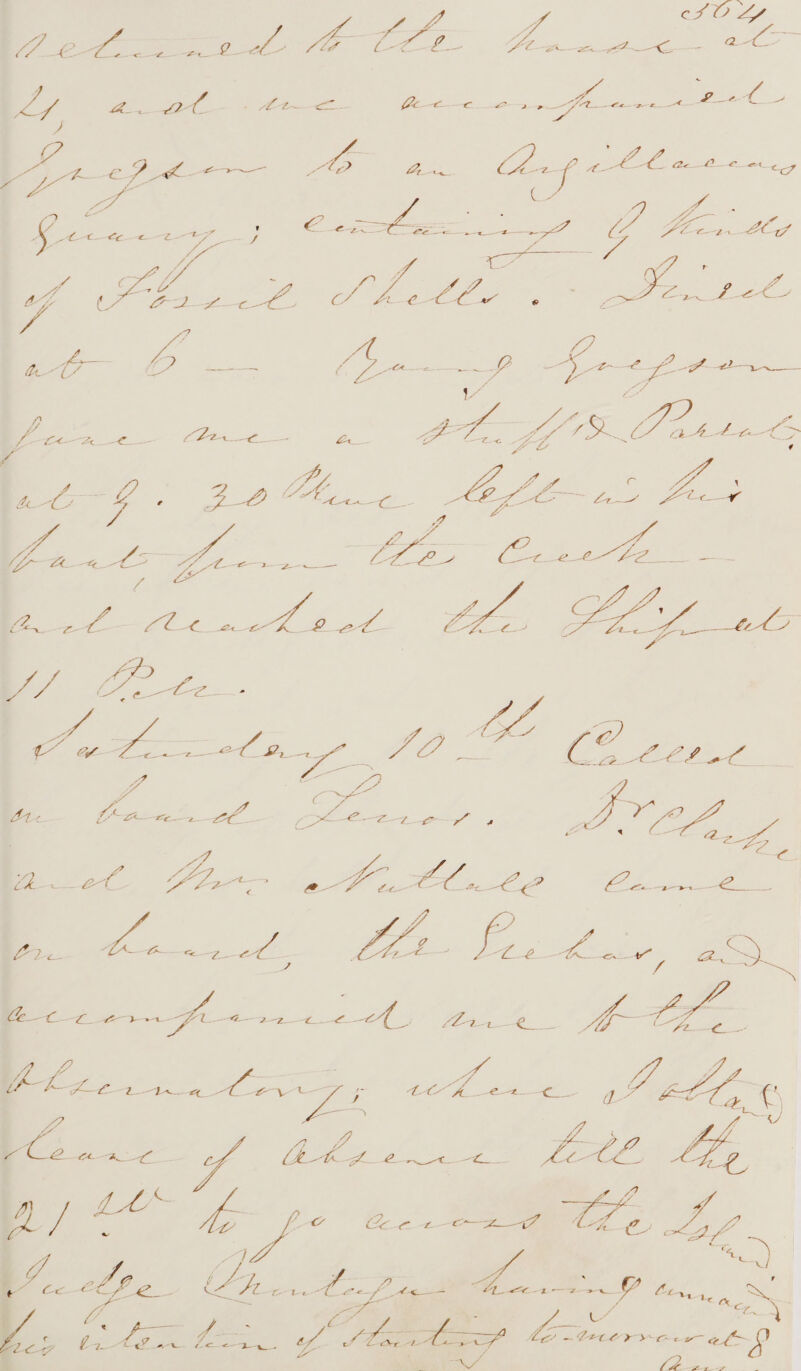 364
returned to the house at
4, and we accompanied
Gregson to an Argillaceous
Quarry; containing 9 kinds
of Fossil Shells. Dined
at 6 — Young Gregson
gave me a stuff'd Parrot,
at 9.30 left in his
boat, from the Creek —
and reached the Ship at
11 P.M.
Saturday 10th Called
on board Terror. Dr Clarke
and Mr. Nuttall came
on board, the Erebus, and
accompanied me to the
Observatory; where I obtaind
leave of absence till the
21st to go across the Island
Judge Montagu having announcd
his intention of starting to-morrow at 8